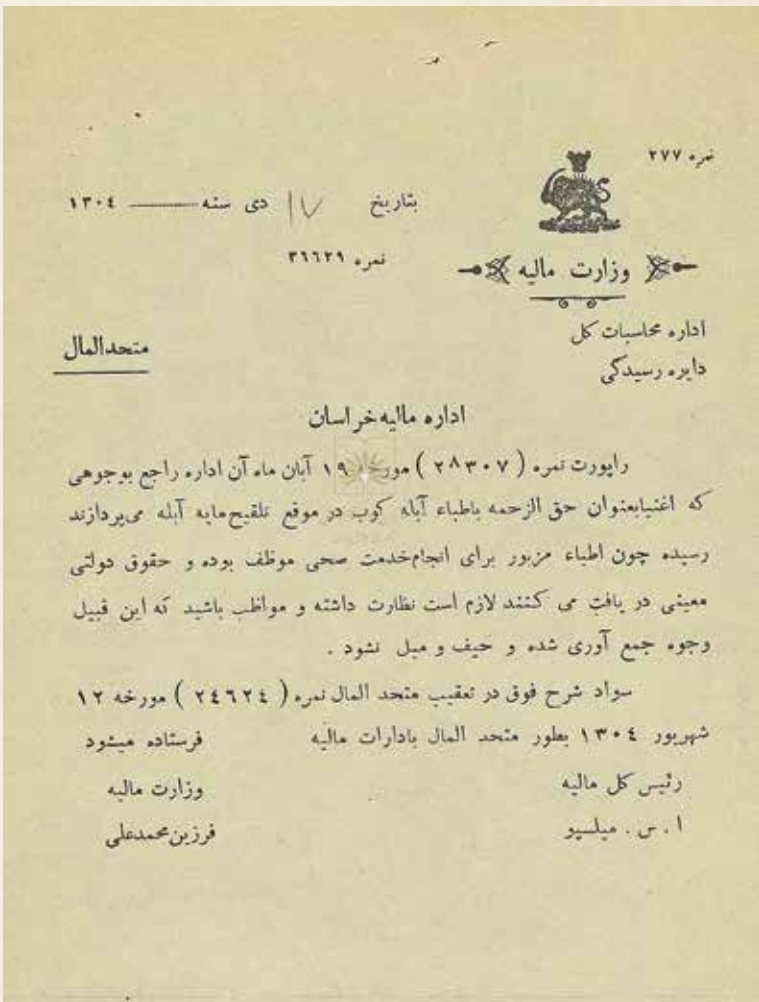 نمره ۲۷۷
بتاریخ ۱۷ دی سنه ۱۳۰٤
نمره ۳٦٦۲۹
وزارت مالیه
اداره محاسبات کل
دایره رسیدگی
متحدالمال
اداره مالیه خراسان
راپورت نمره ( ۲۸۳۰۷ ) مورخه ۱۹ آبان ماه آن اداره راجع بوجوهی
که اغنیابعنوان حق الزحمه باطباء آبله کوب در موقع تلقیح مایه آبله می پردازند
رسیده چون اطباء مزبور برای انجام خدمت صحی موظف بوده و حقوق دولتی
معینی در یافت می کنند لازم است نظارت داشته و مواظب باشید که این قبیل
وجوه جمع آوری شده و حیف و میل نشود .
سواد شرح فوق در تعقیب متحد المال نمره ( ۲٤٦۲٤ ) مورخه ۱۲
شهریور ۱۳۰٤ بطور متحد المال بادارات مالیه فرستاده میشود
رئیس کل مالیه وزارت مالیه
ا . س . میلسپو فرزین محمدعلی